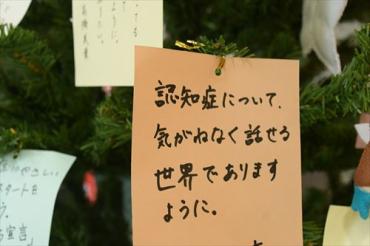 認知症について、
気がねなく話せる
世界であります
ように。